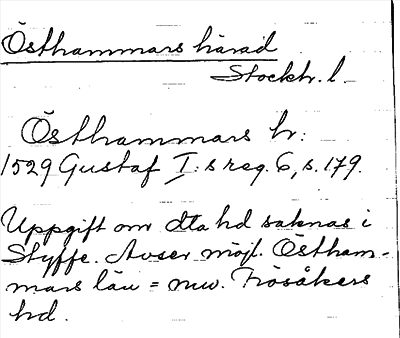 Östhammars härad
Stockh. l.
Östhammars hr:
1529 Gustaf I:s reg. 6, s. 179.
Uppgift om dta hd saknas i
Styffe. Avser möjl. Östham-
mars län = nuv. Frösåkers
hd.